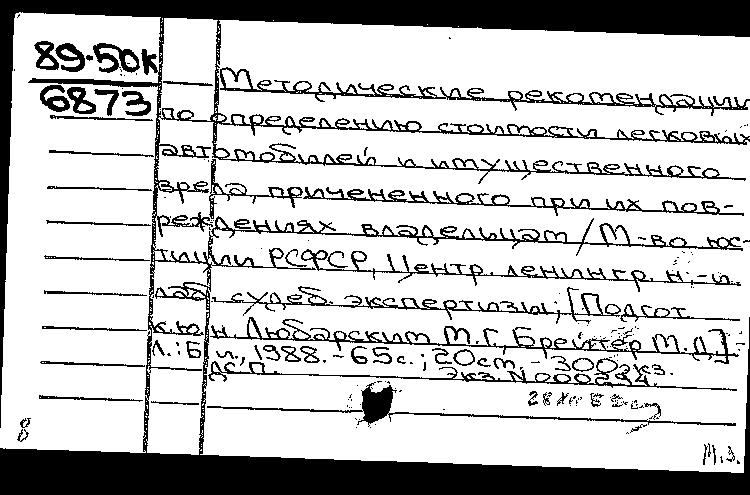 89-50к
6873
Методические рекомендации
по определению стоимости легковых
автомобилей и имущественного
вреда, приченен­ного при их пов-
реждениях владельцам / М-во юс-
тиции РСФСР, Центр. ленингр. н.-и.
лаб. судеб. экспертизы; [Подгот.
к.ю.н. Любарским М.Г., Брейтер М.Д.] -
Л.: Б.и., 1988. - 65с.; 20см. - 300экз.
ДСП. Экз. N 000294.
8
М.З.